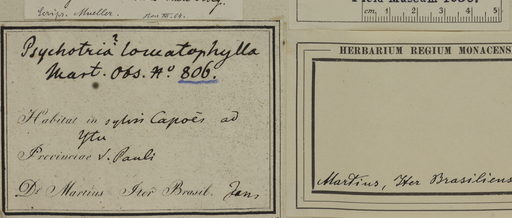 Scrips. Mueller.
Field Museum
cm. 1 2 3 4 5
Psychotria? lomatophylla
Mart. Obs. No 806.
Habitat in sylvis Capoës ad
Ytu
Provinciae S. Pauli
Dr Martius Iter Brasil. Jan.
HERBARIUM REGIUM MONACENS
Martius, Iter Brasiliens